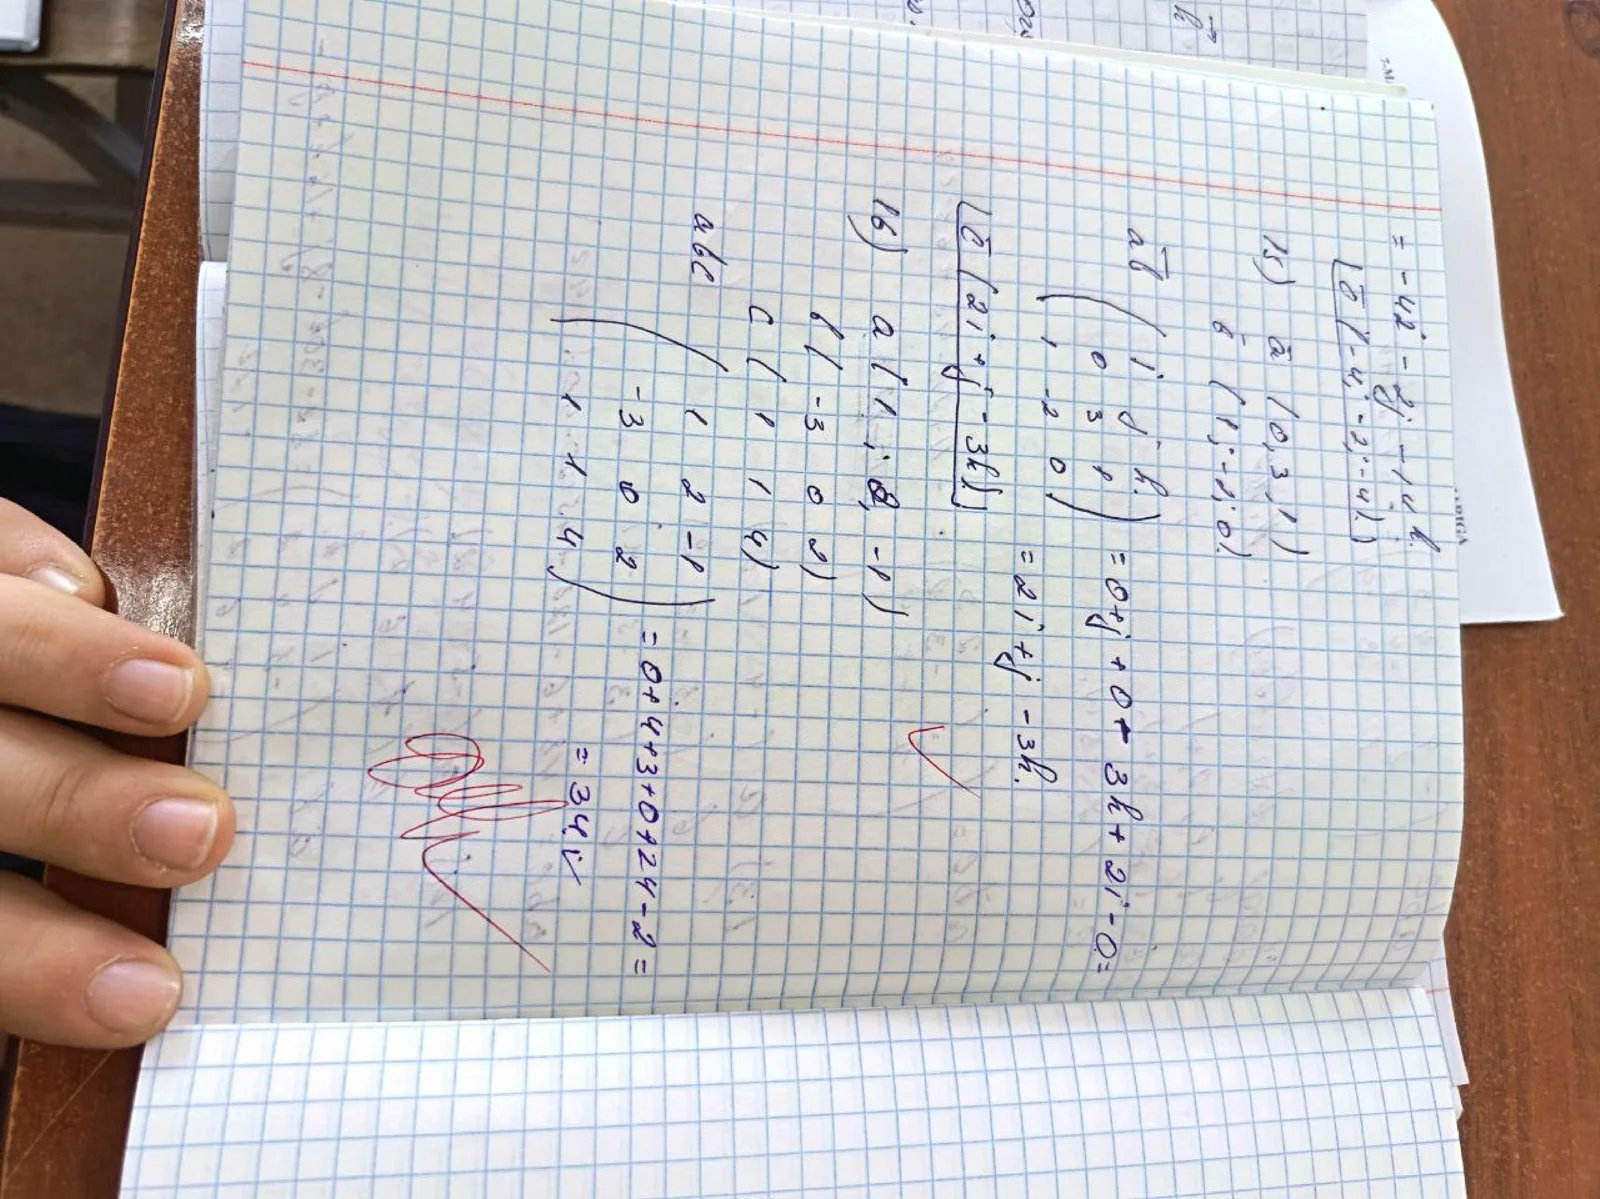 = -4i - 2j - 14k.
c̄ (-4; -2; -4)
15) ā (0, 3, 1)
b̄ (1; -2; 0)
ab̄ ( i j k
0 3 1
1 -2 0 ) = 0+j + 0 - 3k + 2i - 0 =
= 2i + j - 3k.
c̄ (2i + j - 3k)
16) a (1; 2, -1)
b ( -3 0 2)
c ( 1 1 4)
abc ( 1 2 -1
-3 0 2
1 1 4 ) = 0+4+3+0+24-2 =
= 34